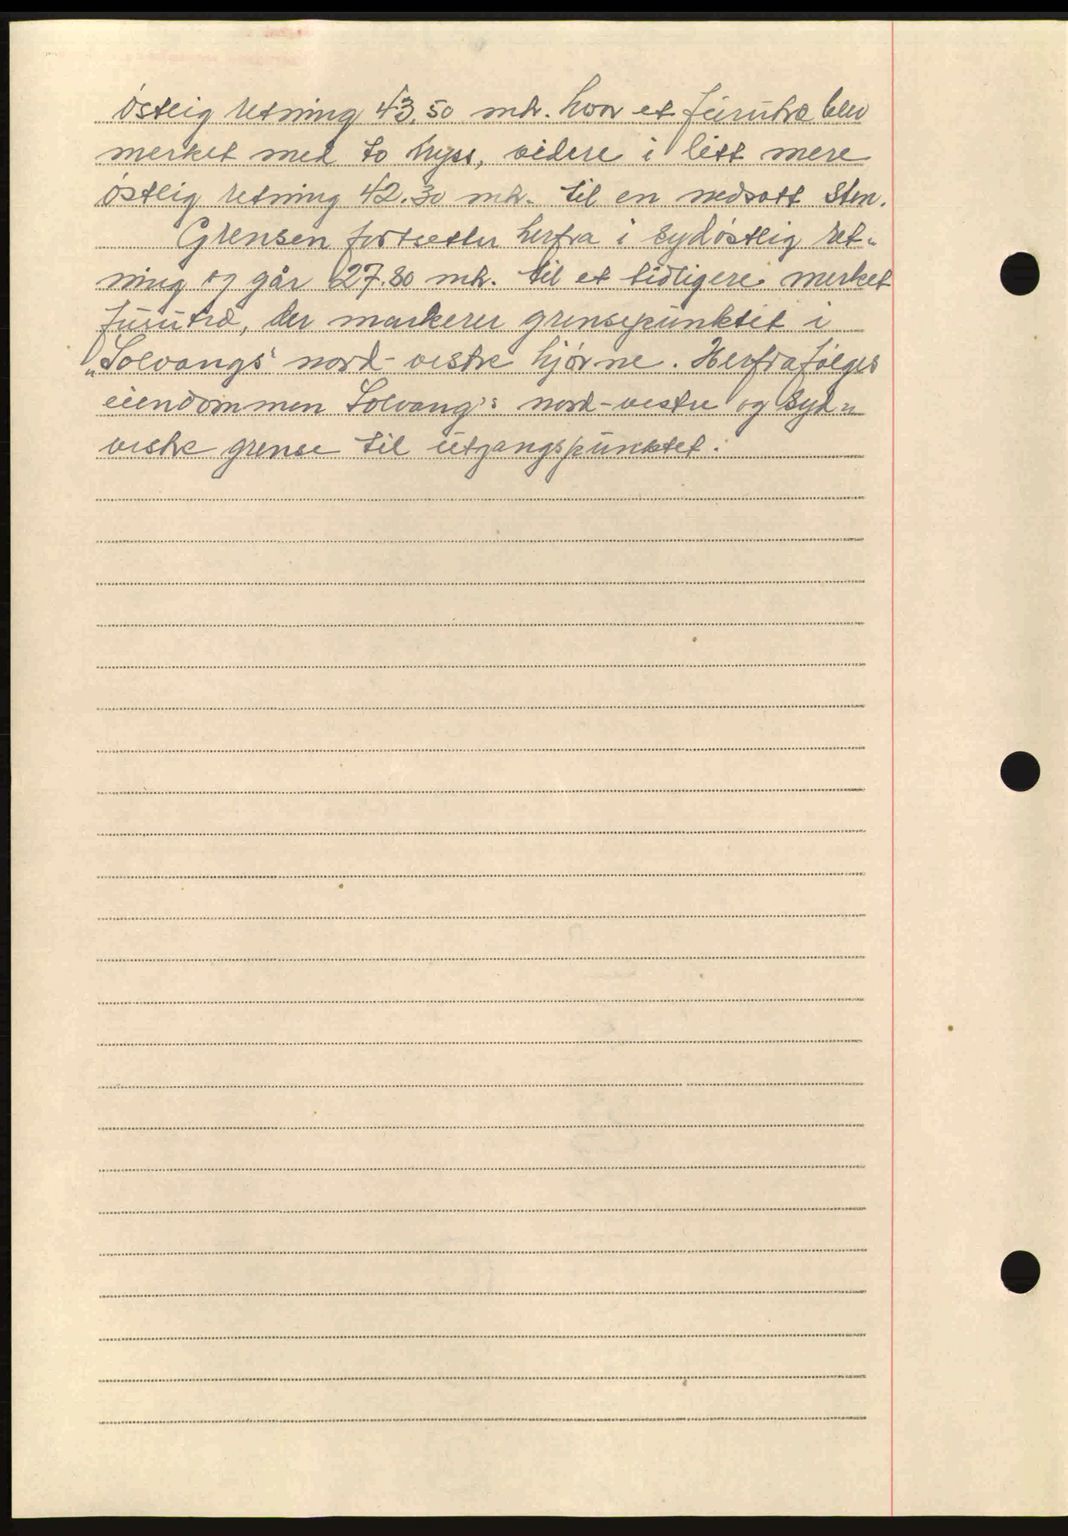 östlig retning 43,50 mtr. hvor et furutre blev
merket med to kryss, videre i litt mere
östlig retning 42.30 mtr. til en nedsatt Sten.
Grensen fortsetter herfra i sydöstlig ret-
ning og går 27.80 mtr. til et tidligere merket
furutre, der markerer grensepunktet i
„Solvangs" nord-vestre hjörne. Herfra fölges
eiendommen Solvang's nord-vestre og Syd-
vestre grense til utgangspunktet.